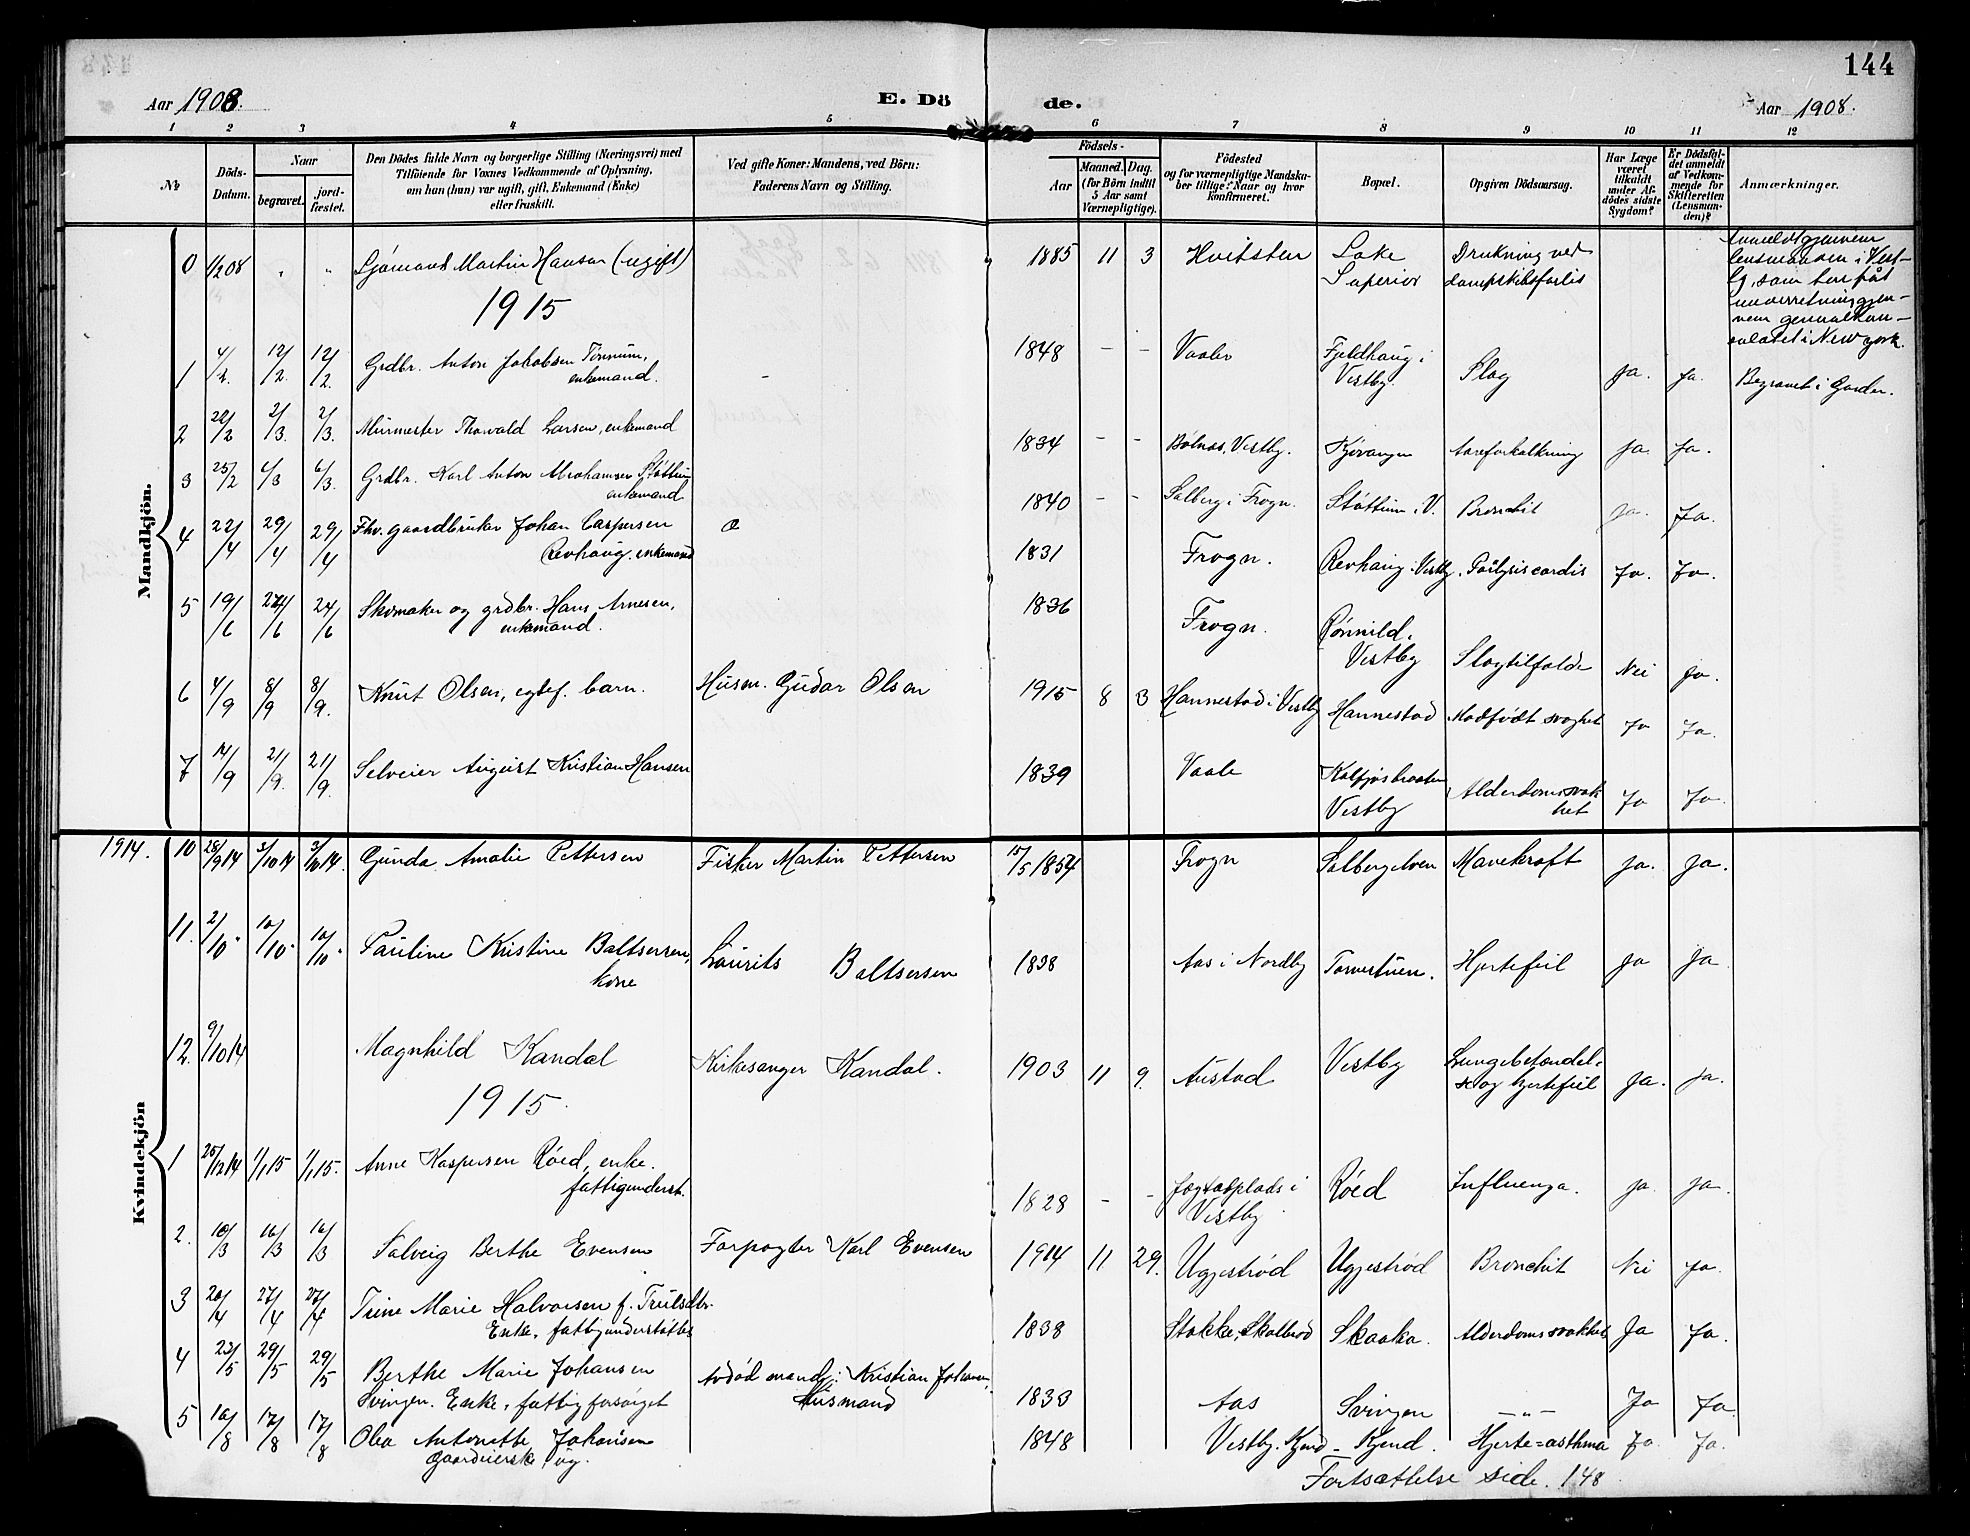 144
Aar 1908.
E. Dö
de.
Aar 1908.
1 2 3 4 5 6 7 8 9 10 11 12
No
Döds-Datum.
Naar
begravet.
jord-fæstet.
Den Dödes fulde Navn og borgerlige Stilling (Næringsvei) med
Tilföiende for Voxnes Vedkommende af Oplysning,
om han (hun) var ugift, gift, Enkemand (Enke)
eller fraskilt.
Ved gifte Koner: Mandens, ved Börn:
Faderens Navn og Stilling.
Födsels-
Aar
Maaned. Dag.
(for Börn indtil
5 Aar samt
Værnepligtige).
Födested
og for værnepligtige Mandska-
ber tillige: Naar og hvor
konfirmeret.
Bopæl.
Opgiven Dödsaarsag.
Har Læge
været
tilkaldt
under Af-
dödes sidste
Sygdom?
Er Dödsfal-
det anmeldt
af Vedkom-
mende for
Skifteretten
(Lensman-
den)?
Anmærkninger.
Mandkjön.
0 1/2 08 " " Sjømand Martin Hansen (ugift) - 1885 11 3 Hvitsten Lake Superior Drukning ved dampskibsforlis
Anmeldt gjennem
lensmanden i Vest-
by, som har fåt
underretning gjen-
nem generalkon-
sulatet i New york.
1915
1 4/2. 12/2. 12/2. Grdbr. Anton Jakobsen Tønnum, enkemand. - 1848 - - Vaaler Fjeldhaug i Vestby. Slag ja. ja. Begravet i Garder.
2 22/2 2/3. 2/3. Murmester Thorvald Larsen, enkemand 1834 - - Bølnes, Vestby. Kjøvangen Aareforkalkning ja. ja.
3 25/2 6/3 6/3. Grdbr. Karl Anton Abrahamsen Støttum enkemand 1840 - - Solberg i Frogn. Støttum i V. Bronchit ja. Ja.
4 22/4 29/4 29/4 Fhv. gaardbruker Johan Caspersen Revhaug. enkemand 1831 Frogn. Revhaug i Vestby. Paralysis cordis Ja. Ja.
5 19/6 24/6 24/6 Skomaker og grdbr. Hans Arnesen, enkemand. 1836 Frogn. Rønnild. Vestby Slagtilfælde Nei ja.
6 4/9 8/9 8/9. Knut Olsen, egtef. barn. Husm. Gudar Olsen 1915 8 3 Hannestad i Vestby Hannestad Medfødt svaghet Ja Ja.
7 14/9 21/9. 21/9. Selveier August Kristian Hansen 1839 Vaale Vestby Alderdomssvakhet Ja Ja.
Kvindekjön
1914. 10 28/9 14 3/10 14 3/10 14. Gunda Amalie Pettersen Fisker Martin Pettersen 15/5 1854 Frogn Solbergelven Mavekræft ja. ja.
11. 2/10. 10/10. 10/10. Pauline Kristine Baltsersen, kone Laurits Baltsersen 1838 Aas i Nordby Torvestuen. Hjertefeil ja ja
12. 9/10 14 Magnhild Kandal Kirkesanger Kandal. 1903 11 9. Austad Vestby Lungebetændel-se og hjertefeil ja. ja.
1915.
1 25/12 14 1/1 15 1/1 15. Anne Kaspersen Røed, enke. fattigunderst. 1828 - - Vestby Røed Influenza. ja ja.
2. 10/3 16/3 16/3 Solveig Berthe Evensen Forpagter Karl Evensen 1914 11 29. Uggestrød Uggestrød Bronchit Nei ja.
3 20/4 27/4 27/4 Trine Marie Halvorsen f. Trulsdtr. Enke, fattigunderstøttet 1838 Stokke, Skallerød Skaaka. Alderdomssvakhet Ja Ja.
4 23/5 29/5 29/5 Berthe Marie Johansen Svingen. Enke, fattigforsørget Avdød mand: Kristian Johansen, Husmand 1833 Aas Svingen -"- Ja Ja.
5 10/8 17/8 17/8 Olea Antonette Johansen Gaardeierske, ug. 1848 Vestby. Kjend - Kjend. Hjerte=asthma Ja. Ja.
Fortsættelse side. 148